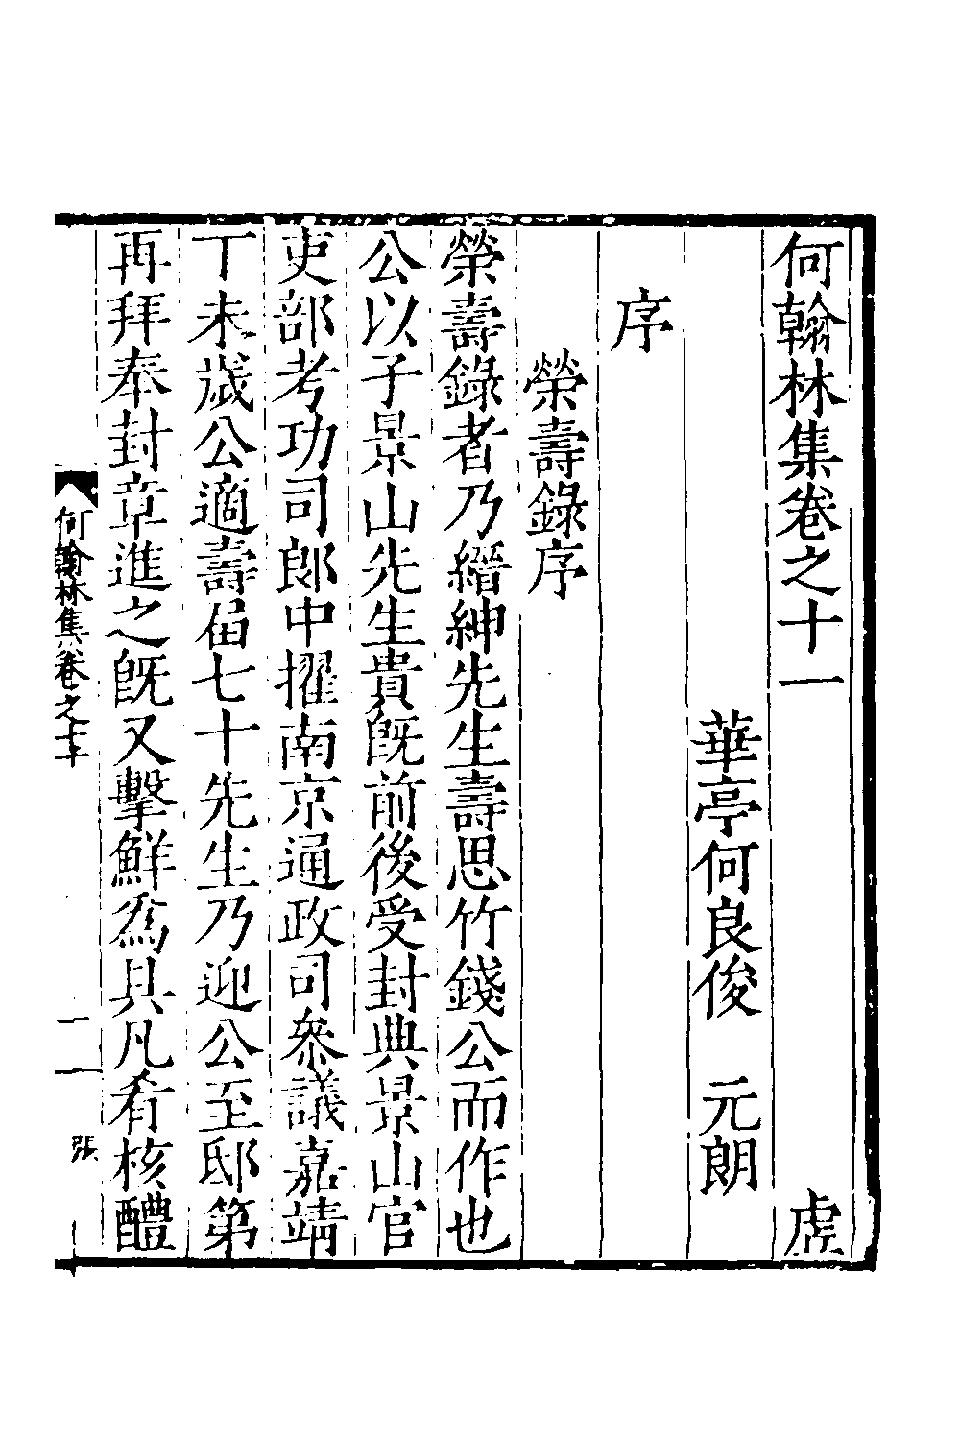 何翰林集卷之十一
虗
華亭何良俊 元朗
序
榮壽錄序
榮壽錄者乃縉紳先生壽思竹錢公而作也
公以子景山先生貴旣前後受封典景山官
吏部考功司郎中擢南京通政司叅議嘉靖
丁未歲公適壽屆七十先生乃迎公至邸第
再拜奉封章進之旣又擊鮮爲具凡肴核醴
何翰林集卷之十一
一
張